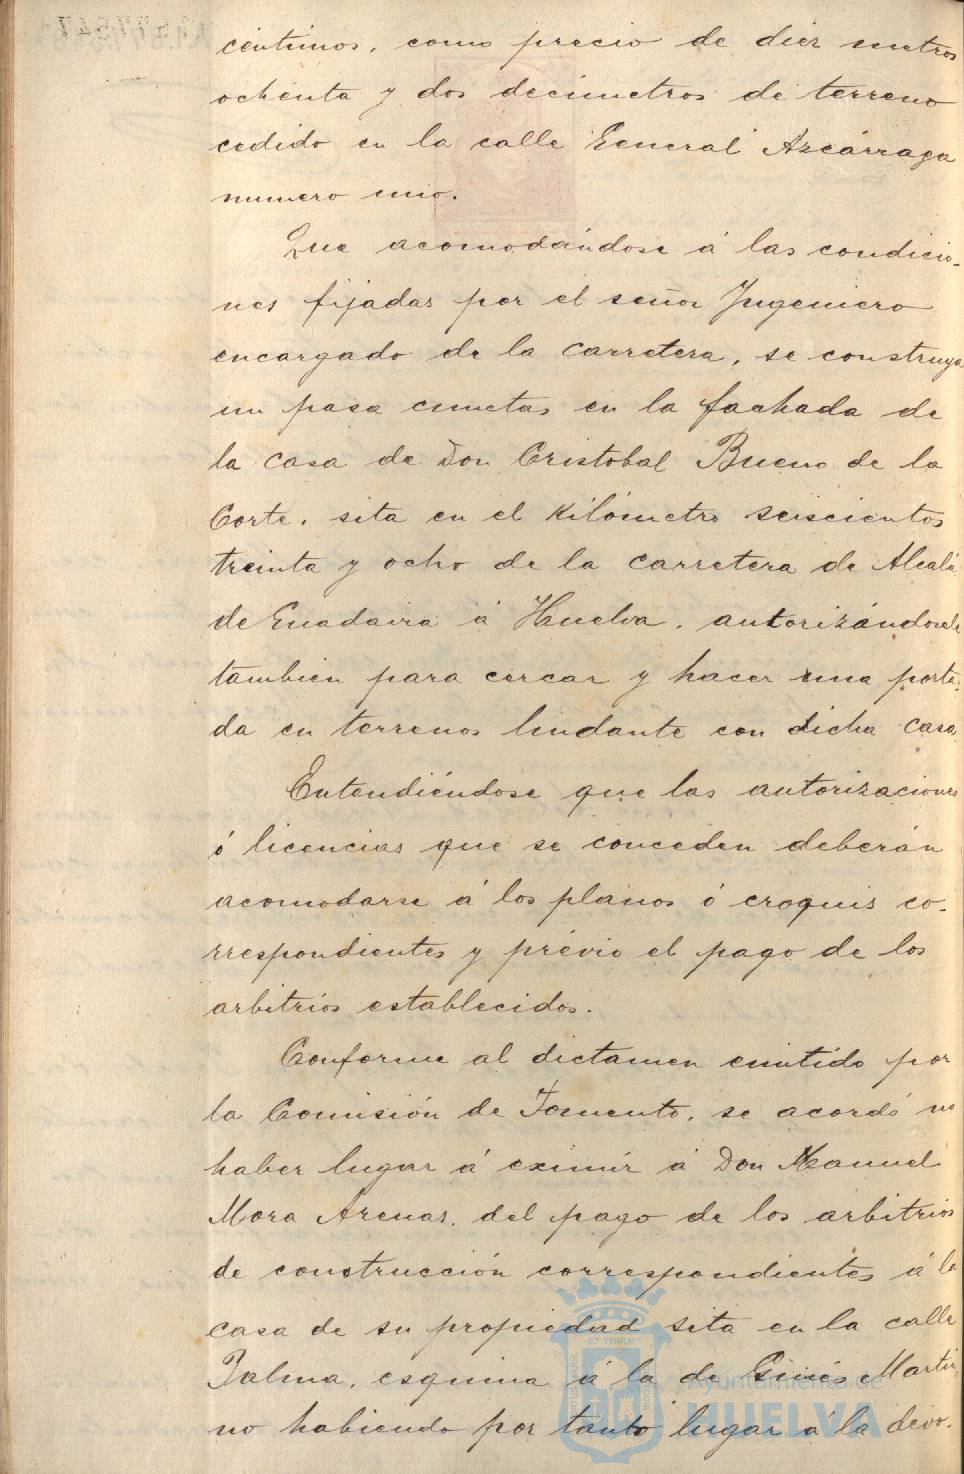 céntimos, como precio de diez metros
ochenta y dos decimetros de terreno
cedido en la calle General Azcárraga
numero uno.
Que acomodándose á las condicio-
nes fijadas por el señor Ingeniero
encargado de la carretera, se construya
un pasa cunetas en la fachada de
la casa de Don Cristobal Bueno de la
Corte, sita en el kilómetro seiscientos
treinta y ocho de la carretera de Alcalá
de Guadaira á Huelva, autorizándosele
tambien para cercar y hacer una porta-
da en terrenos lindante con dicha casa
Entendiéndose que las autorizaciones
ó licencias que se conceden deberán
acomodarse á los planos ó croquis co-
rrespondientes y prévio el pago de los
arbitrios establecidos.
Conforme al dictamen emitido por
la Comisión de Fomento, se acordó no
haber lugar á eximir á Don Manuel
Mora Arenas, del pago de los arbitrios
de construcción correspondientes á la
casa de su propiedad sita en la calle
Palma, esquina á la de Ginés Martín,
no habiendo por tanto lugar á la devo-
Ayuntamiento de
HUELVA